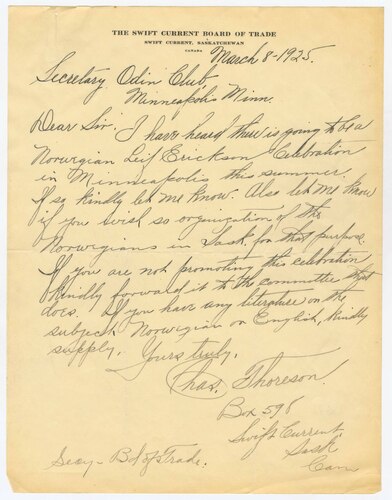 THE SWIFT CURRENT BOARD OF TRADE
SWIFT CURRENT, SASKATCHEWAN
CANADA
March 8-1925.
Secretary Odin Club,
Minneapolis Minn.
Dear Sir. I have heard there is going to be a
Norwegian Leif Erickson Celebration
in Minneapolis this summer.
If so kindly let me know. Also let me know
if you wish so organization of the
Norwegians in Sask. for that purpose.
If you are not promoting this celebration
kindly forward it to the committee that
does. If you have any literature on the
subject Norwegian or English, kindly
supply.
Yours truly,
Chas. Thoreson.
Box 598
Swift Current
Sask
Can
Secy - Bd of Trade.